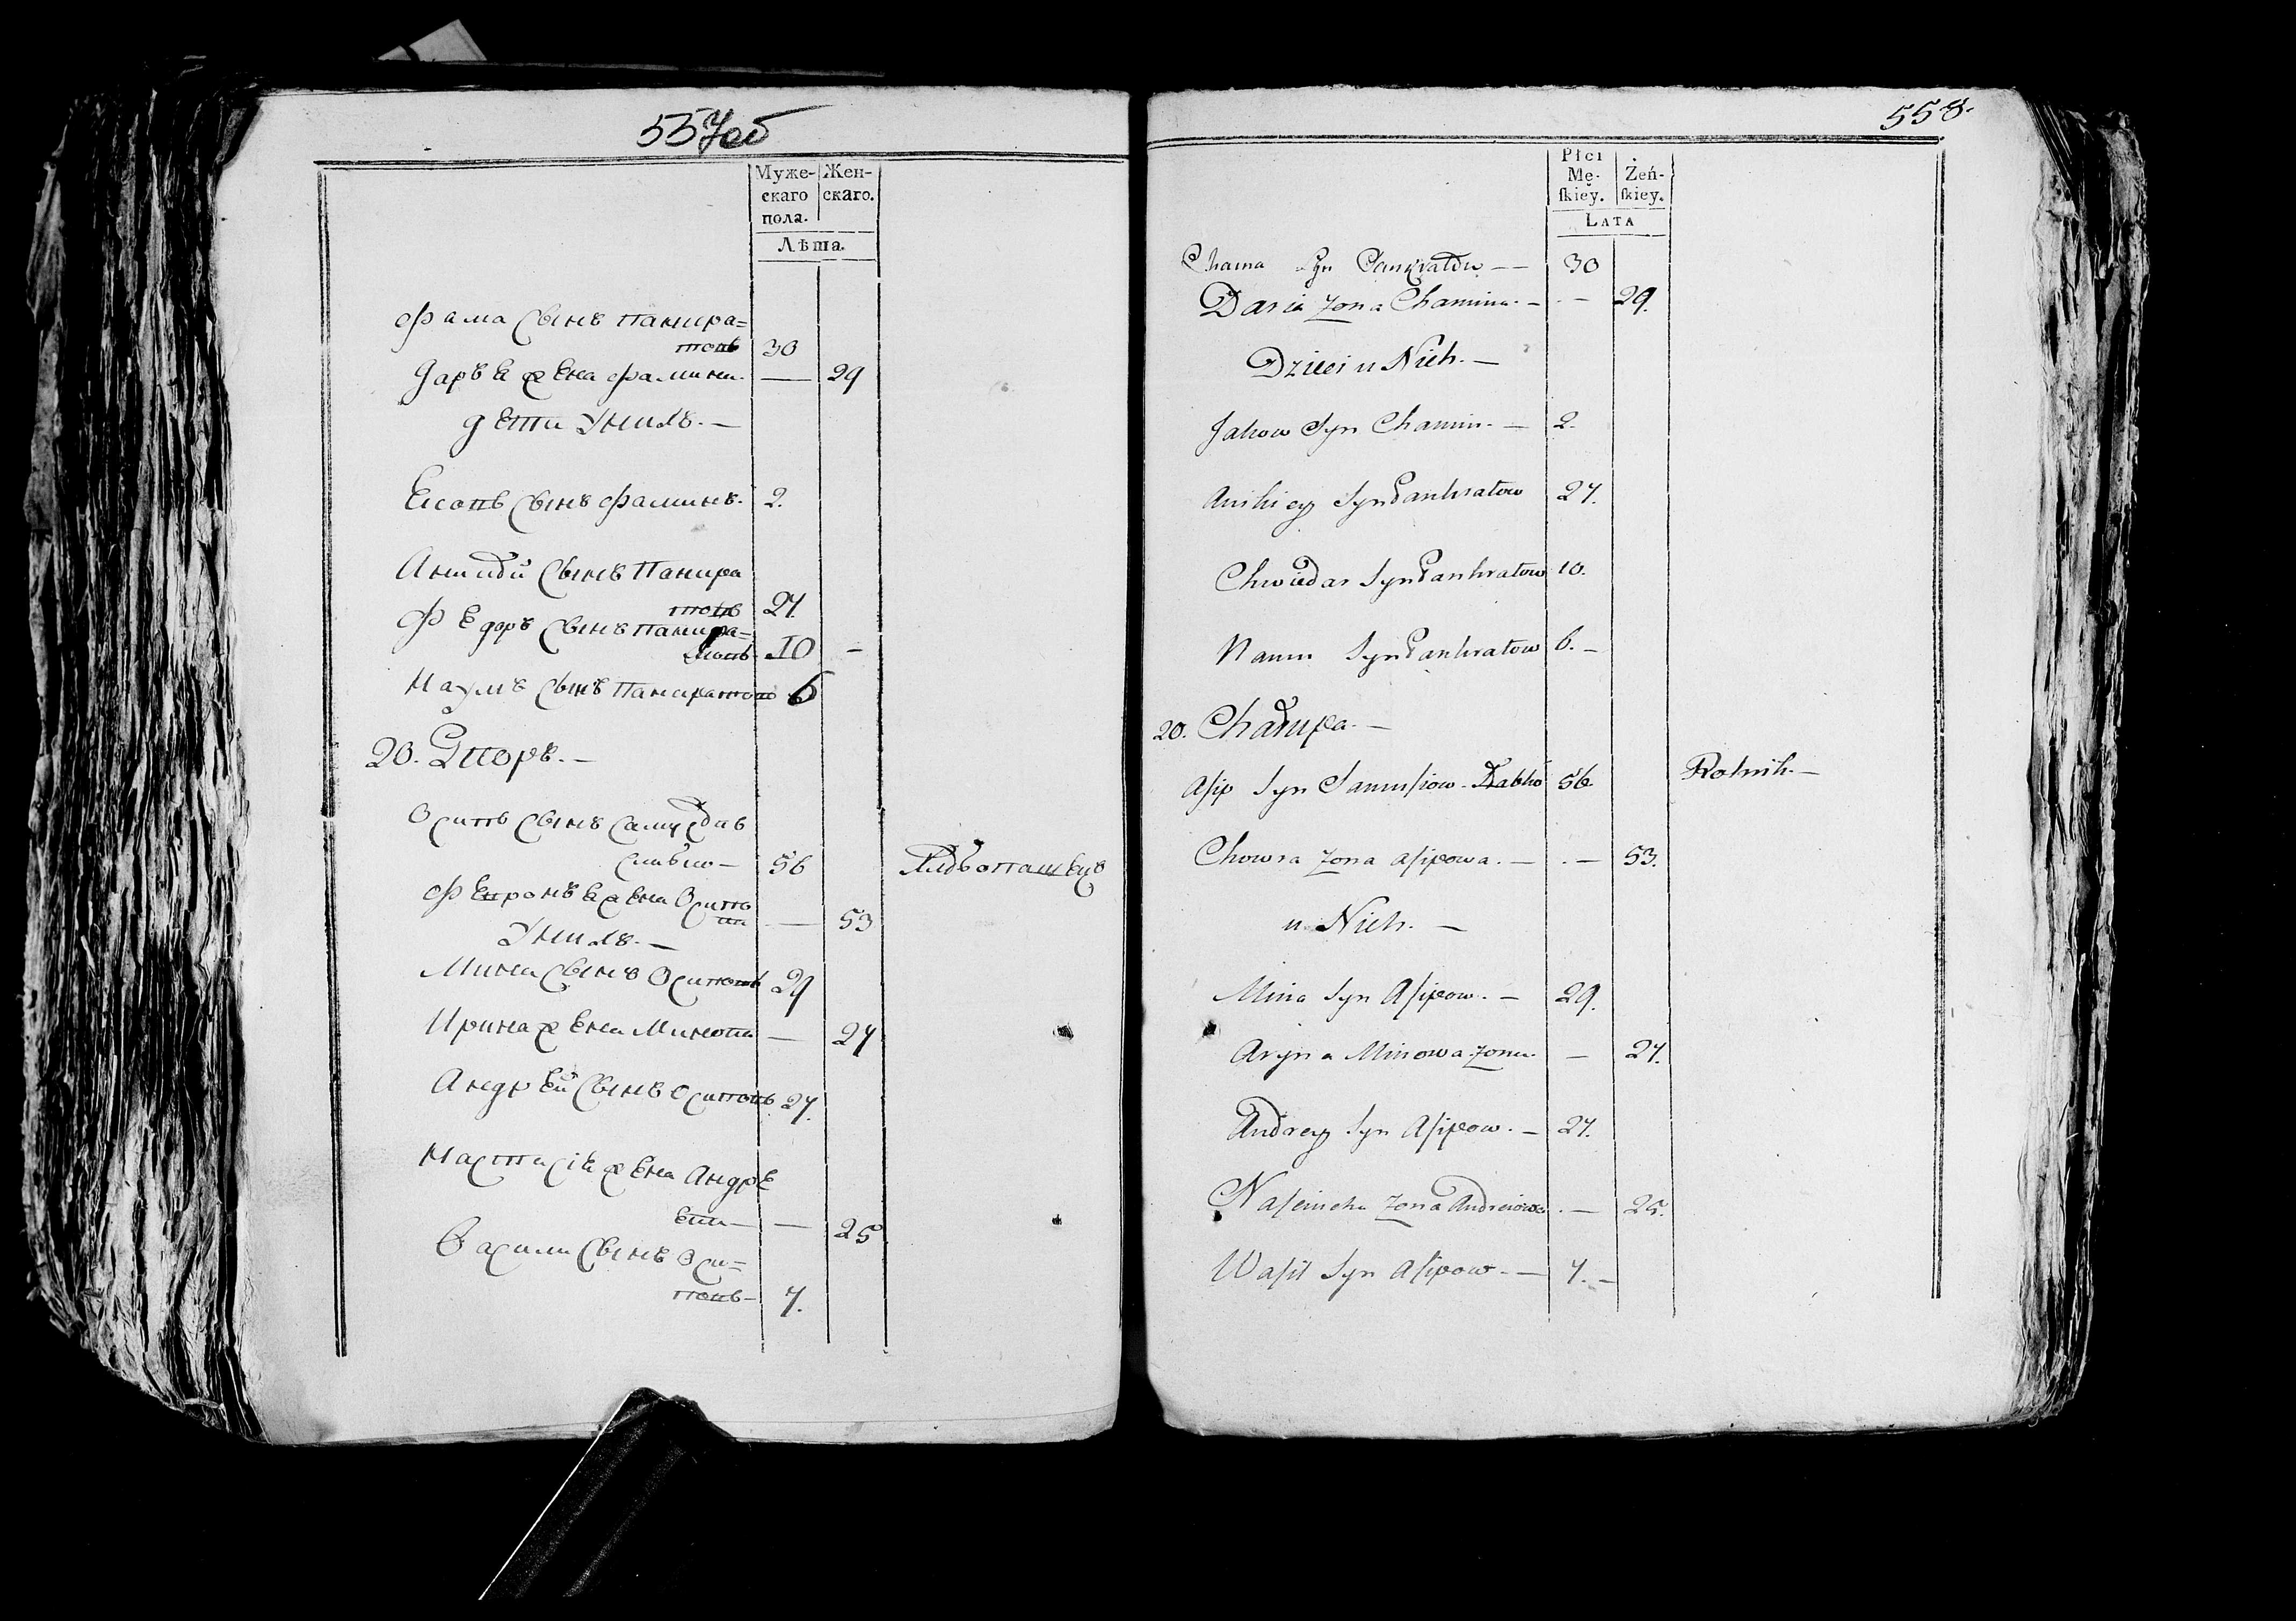 557об
Муже-
скаго
пола.
Жен-
скаго.
Лѣта.
Фама Сынъ Панкра=
товъ 30
Даръя жена Фамина. — 29
дети Унихъ. —
Сынъ Фаминъ. 2.
Сынъ Панкра
товъ 27.
Федоръ Сынъ Панкра=
товъ 10 —
Наумъ Сынъ Панкратовъ 6
20. Дворъ. —
Осипъ Сынъ
56
жена Осипо
ва — 53
Унихъ. —
Мина Сынъ Осиповъ 29
Ирина жена Минова — 27
Андрей Сынъ Осиповъ 27.
Настасiя жена Андре
ева — — 25
Васили Сынъ Оси=
повъ — 7.
558.
Płci
Mę-
ſkiey.
Żeń-
ſkiey.
LATA
Chama Syn Pankratow — 30
Daria Zona Chamina. — · — 29.
Dzieci u Nich. —
Jakow Syn Chamin. — 2.
Anikiey Syn Pankratow 27.
Chwiedar Syn Pankratow 10.
Naum Syn Pankratow 6. —
20. Chałupa. —
Aſip Syn Samuſiow 56. Rolnik. —
Chowra Zona Aſipowa. — · — 53.
u Nich. —
Mina Syn Aſipow. — 29.
Aryna Minowa Zona. — 27.
Andrey Syn Aſipow. — 27.
Zona Andreiowa · — 25.
Waſil Syn Aſipow. — 7. —